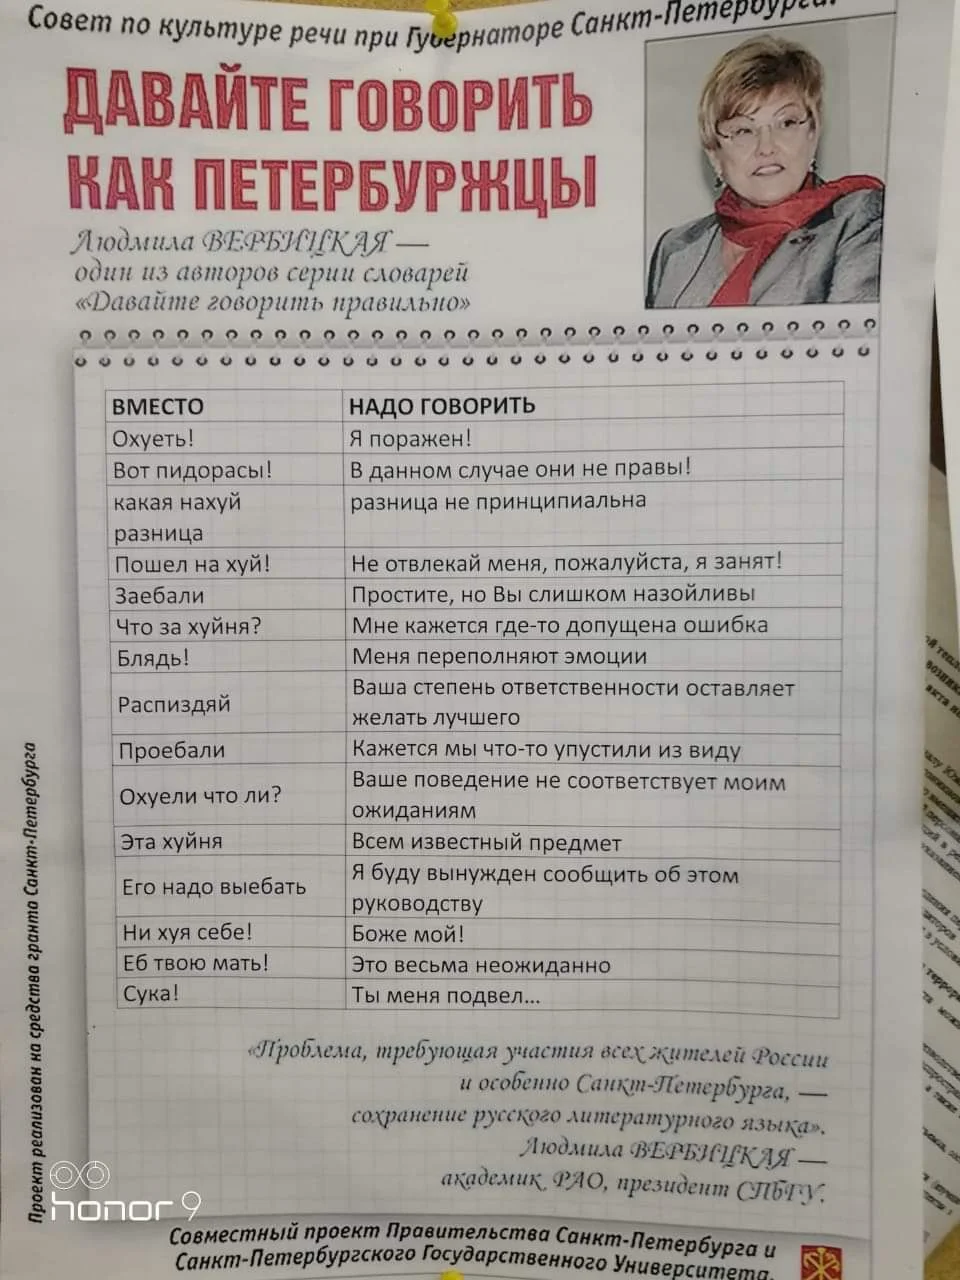 Совет по культуре речи при Губернаторе Санкт-Петербурга.
ДАВАЙТЕ ГОВОРИТЬ
КАК ПЕТЕРБУРЖЦЫ
Людмила ВЕРБИЦКАЯ —
один из авторов серии словарей
«Давайте говорить правильно»
ВМЕСТО НАДО ГОВОРИТЬ
Охуеть! Я поражен!
Вот пидорасы! В данном случае они не правы!
какая нахуй разница не принципиальна
разница
Пошел на хуй! Не отвлекай меня, пожалуйста, я занят!
Заебали Простите, но Вы слишком назойливы
Что за хуйня? Мне кажется где-то допущена ошибка
Блядь! Меня переполняют эмоции
Распиздяй Ваша степень ответственности оставляет
желать лучшего
Проебали Кажется мы что-то упустили из виду
Охуели что ли? Ваше поведение не соответствует моим
ожиданиям
Эта хуйня Всем известный предмет
Его надо выебать Я буду вынужден сообщить об этом
руководству
Ни хуя себе! Боже мой!
Еб твою мать! Это весьма неожиданно
Сука! Ты меня подвел...
«Проблема, требующая участия всех жителей России
и особенно Санкт-Петербурга, —
сохранение русского литературного языка».
Людмила ВЕРБИЦКАЯ —
академик РАО, президент СПбГУ.
Проект реализован на средства гранта Санкт-Петербурга
Совместный проект Правительства Санкт-Петербурга и
Санкт-Петербургского Государственного Университета.
honor 9